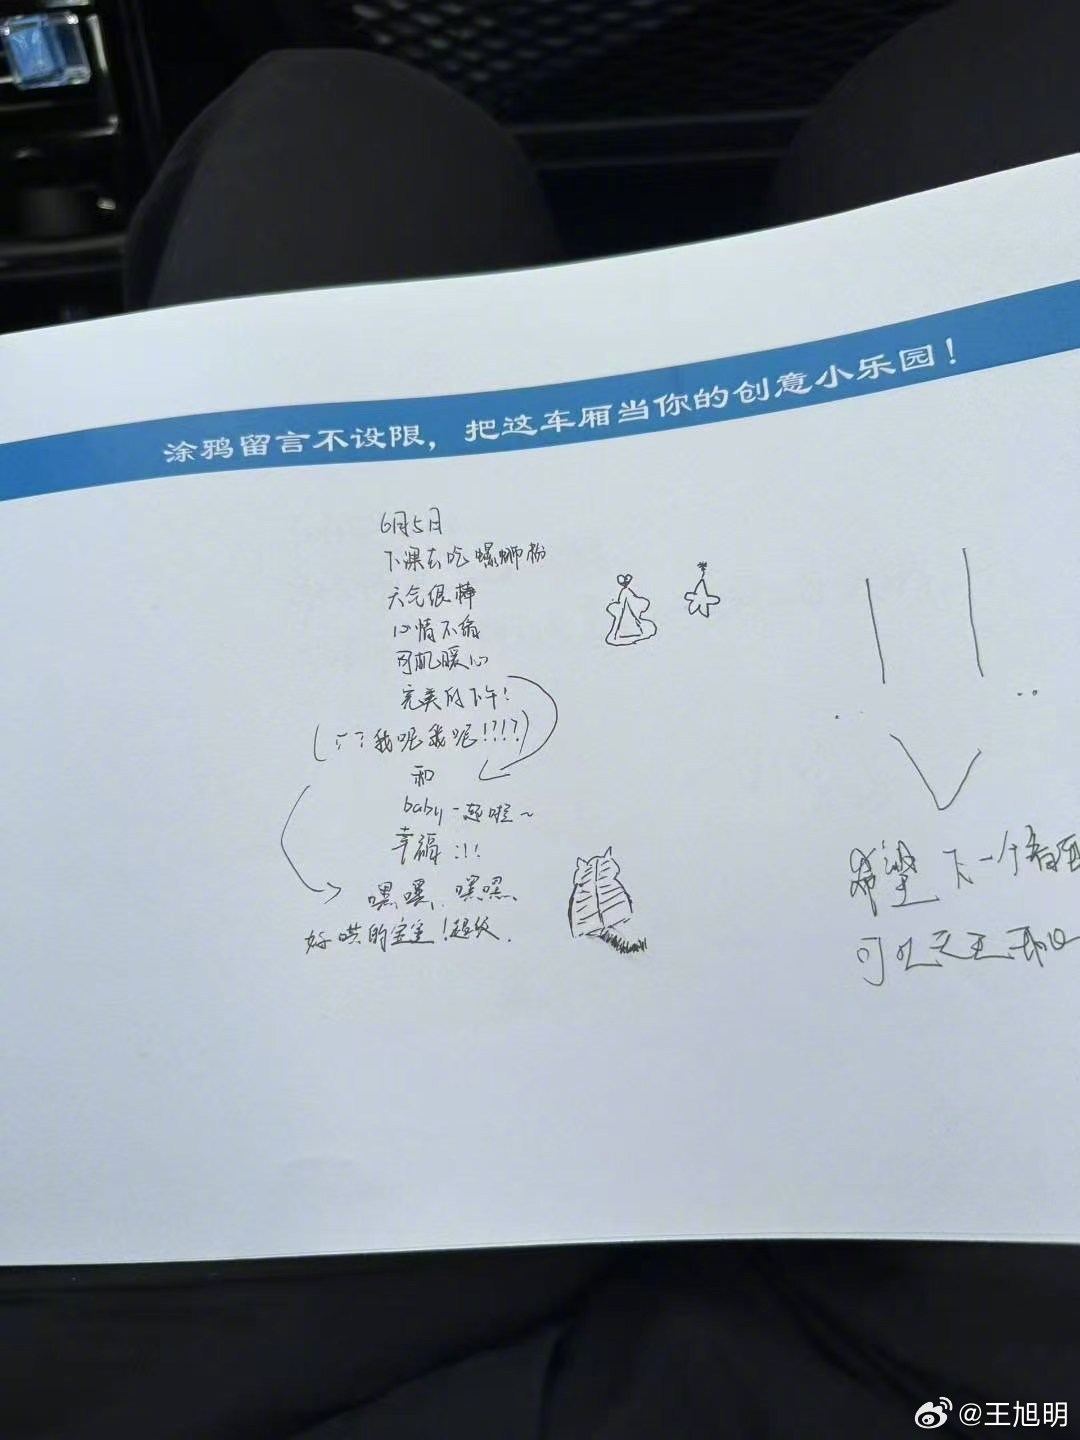 涂鸦留言不设限，把这车厢当你的创意小乐园！
6月5日
下课去吃螺蛳粉
天气很棒
心情不错
司机暖心
完美的下午！
(？？我呢我呢!???)
和
baby一起啦~
幸福!!!
嘿嘿、嘿嘿、
好哄的宝宝！超级.
希望下一个看到
可以天天开心
@王旭明